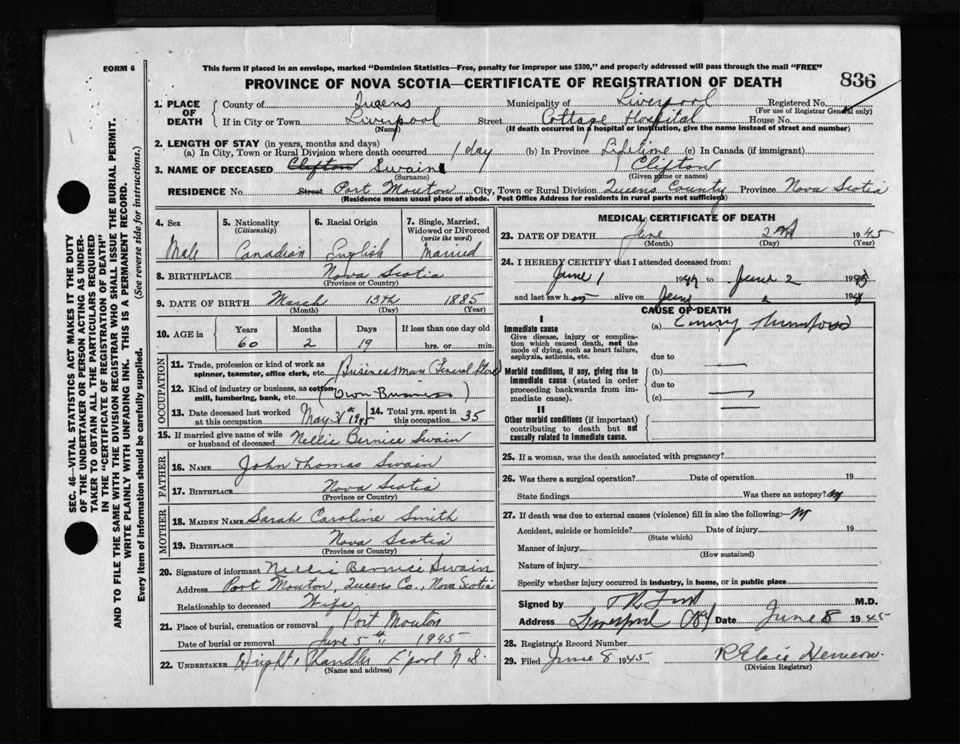 FORM 6
This form if placed in an envelope, marked "Dominion Statistics—Free, penalty for improper use $300," and properly addressed will pass through the mail "FREE"
PROVINCE OF NOVA SCOTIA—CERTIFICATE OF REGISTRATION OF DEATH
836
SEC. 46—VITAL STATISTICS ACT MAKES IT THE DUTY
OF THE UNDERTAKER OR PERSON ACTING AS UNDER-
TAKER TO OBTAIN ALL THE PARTICULARS REQUIRED
IN THE "CERTIFICATE OF REGISTRATION OF DEATH"
AND TO FILE THE SAME WITH THE DIVISION REGISTRAR WHO SHALL ISSUE THE BURIAL PERMIT.
WRITE PLAINLY WITH UNFADING INK. THIS IS A PERMANENT RECORD.
Every item of information should be carefully supplied. (See reverse side for instructions.)
1. PLACE OF DEATH
County of Queens Municipality of Liverpool Registered No.
(For use of Registrar General only)
If in City or Town Liverpool Street Cottage Hospital House No.
(Name) (If death occurred in a hospital or institution, give the name instead of street and number)
2. LENGTH OF STAY (in years, months and days)
(a) In City, Town or Rural Division where death occurred 1 day (b) In Province Lifetime (c) In Canada (if immigrant)
3. NAME OF DECEASED Clifton Swain Clifton
(Surname) (Given name or names)
RESIDENCE No. Street Port Mouton City, Town or Rural Division Queens County Province Nova Scotia
(Residence means usual place of abode. Post Office Address for residents in rural parts not sufficient)
4. Sex 5. Nationality (Citizenship) 6. Racial Origin 7. Single, Married, Widowed or Divorced (write the word)
Male Canadian English Married
8. BIRTHPLACE Nova Scotia
(Province or Country)
9. DATE OF BIRTH March 13th 1885
(Month) (Day) (Year)
10. AGE in Years Months Days If less than one day old
60 2 19 hrs. or min.
OCCUPATION
11. Trade, profession or kind of work as
spinner, teamster, office clerk, etc. Businessman (General Store)
12. Kind of industry or business, as cotton-
mill, lumbering, bank, etc. (Own Business)
13. Date deceased last worked
at this occupation May 1945
14. Total yrs. spent in
this occupation 35
15. If married give name of wife
or husband of deceased Nellie Bernice Swain
FATHER
16. NAME John Thomas Swain
17. BIRTHPLACE Nova Scotia
(Province or Country)
MOTHER
18. MAIDEN NAME Sarah Caroline Smith
19. BIRTHPLACE Nova Scotia
(Province or Country)
20. Signature of informant Nellie Bernice Swain
Address Port Mouton, Queens Co., Nova Scotia
Relationship to deceased Wife
21. Place of burial, cremation or removal Port Mouton
Date of burial or removal June 5th 1945
22. UNDERTAKER Wright & Chandler L'pool N.S.
(Name and address)
MEDICAL CERTIFICATE OF DEATH
23. DATE OF DEATH June 2nd 1945
(Month) (Day) (Year)
24. I HEREBY CERTIFY that I attended deceased from:
June 1 19 to June 2 19
and last saw h alive on 2 19
CAUSE OF DEATH
I
Immediate cause (a)
Give disease, injury or complica-
tion which caused death, not the
mode of dying, such as heart failure,
asphyxia, asthenia, etc.
due to
Morbid conditions, if any, giving rise to (b)
immediate cause (stated in order due to
proceeding backwards from im-
mediate cause). (c)
II
Other morbid conditions (if important)
contributing to death but not
causally related to immediate cause.
25. If a woman, was the death associated with pregnancy?
26. Was there a surgical operation? Date of operation 19
State findings Was there an autopsy?
27. If death was due to external causes (violence) fill in also the following:—
Accident, suicide or homicide? Date of injury 19
(State which)
Manner of injury
(How sustained)
Nature of injury
Specify whether injury occurred in industry, in home, or in public place
Signed by M.D.
Address Date June 8 1945
28. Registrar's Record Number
29. Filed June 8 1945 R Elsie
(Division Registrar)